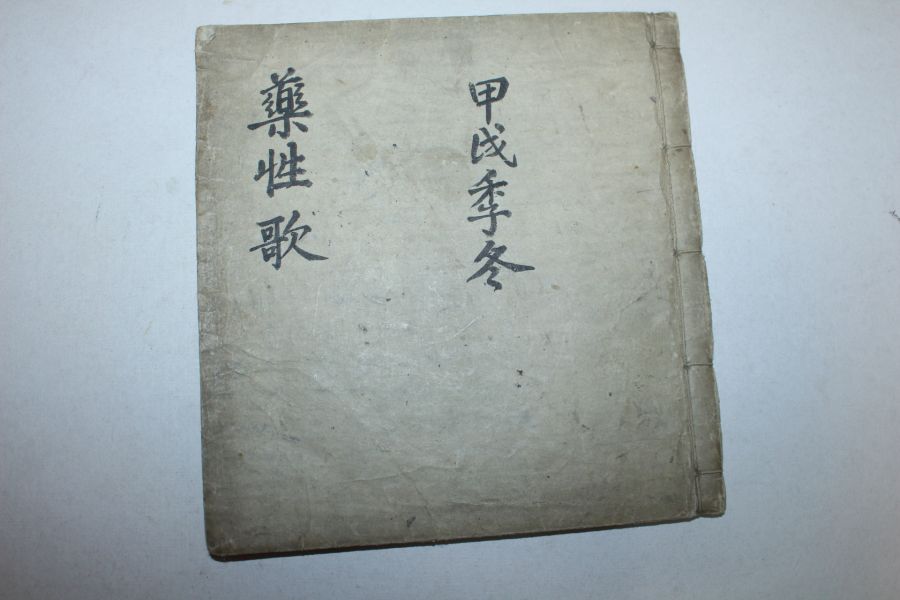 甲戌季冬
藥性歌